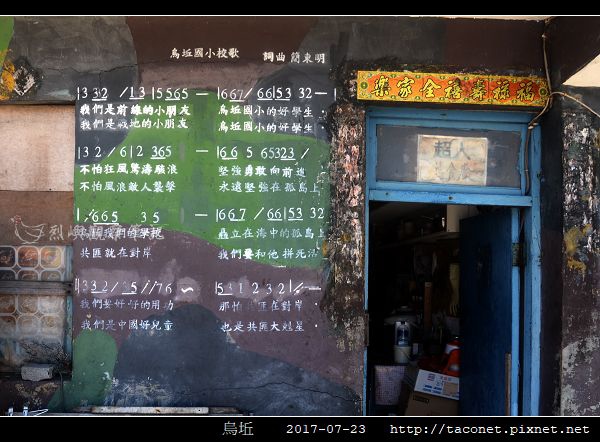 烏坵國小校歌 詞曲 簡東明
|3 32 / 1 3 5565 — |667 / 66|53 32 —
我們是前線的小朋友 烏坵國小的好學生 .
我們是戰地的小朋友 烏坵國小的好學生 .
|3 2 / 6|2 365 — |66 5 65323 /
不怕狂風驚濤駭浪 堅強勇敢向前進
不怕風浪敵人襲擊 永遠堅強在孤島上
665 35 — |667 / 66|53 32
我們的學校 矗立在海中的孤島上
共匪就在對岸 我們要和他拼死活
我們要好好的用功 那怕共匪在對岸 .
我們是中國好兒童 也是共匪大剋星 .
樂家全禧壽祿福
招人
烏坵 2017-07-23 http://taconet.pixnet.net